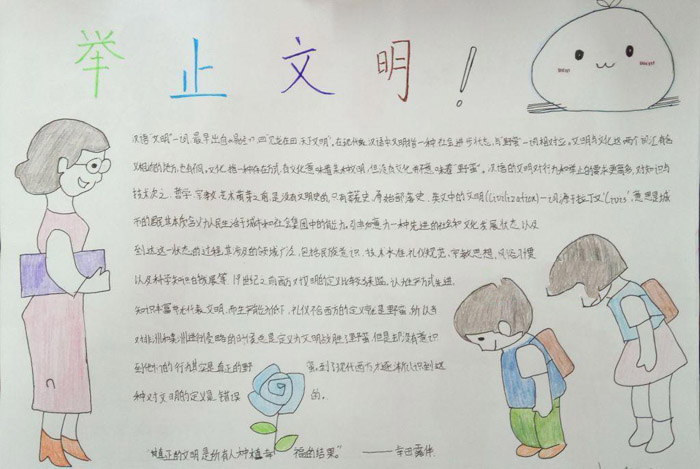 举止文明!
汉语"文明"一词,最早出自《易经》,曰"见龙在田、天下文明"。在现代汉语中文明指一种社会进步状态,与"野蛮"一词相对立。文明与文化这两个词汇有含
义相近的地方,也有不同。文化指一种存在方式,有文化意味着某种文明,但没有文化并不意味着"野蛮"。汉语的文明对行为和举止的要求更高,对知识与
技术次之。
英文中的文明(Civilization)一词源于拉丁文"Civis",意思是城
市的居民,其本质含义为人民生活于城市和社会集团中的能力。引申为一种先进的社会和文化发展状态,以及
到达这一状态的过程,其涉及的领域广泛,包括民族意识、技术水准、礼仪规范、宗教思想、风俗习惯
以及科学知识的发展等。19世纪之前西方对文明的定义比较狭隘,认为生产方式先进,
知识丰富 代表文明,而生产能力低下,礼仪不合西方的定义就是野蛮,所以当
对非洲和美洲进行侵略的时候也是定义为文明战胜了野蛮,但是却没有意识
到他们的行为其实是真正的野蛮,到了现代西方才逐渐认识到这
种对文明的定义是错误的。
"真正的文明是所有人种植幸福的结果。" ——